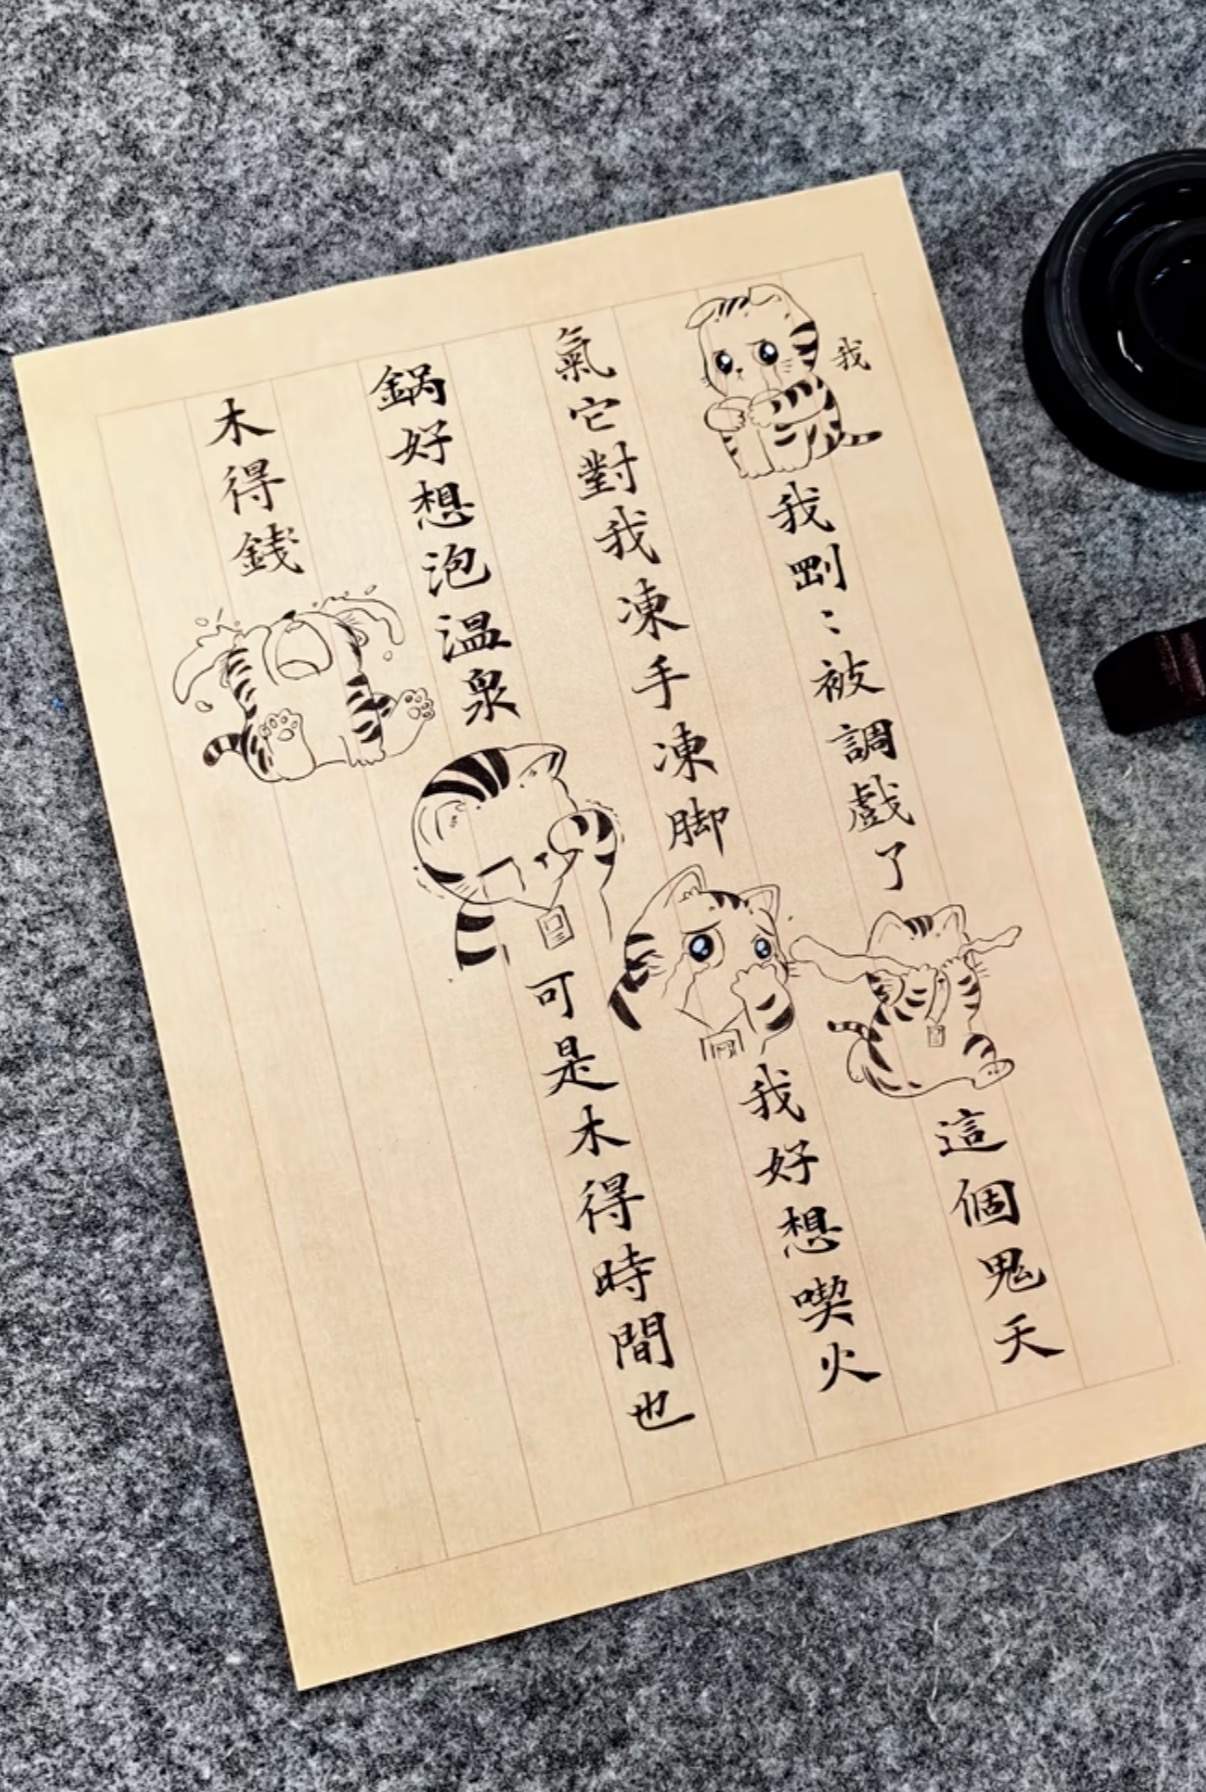 我
我剛：被調戲了這個鬼天
氣它對我凍手凍脚我好想喫火
鍋好想泡温泉可是木得時間也
木得錢